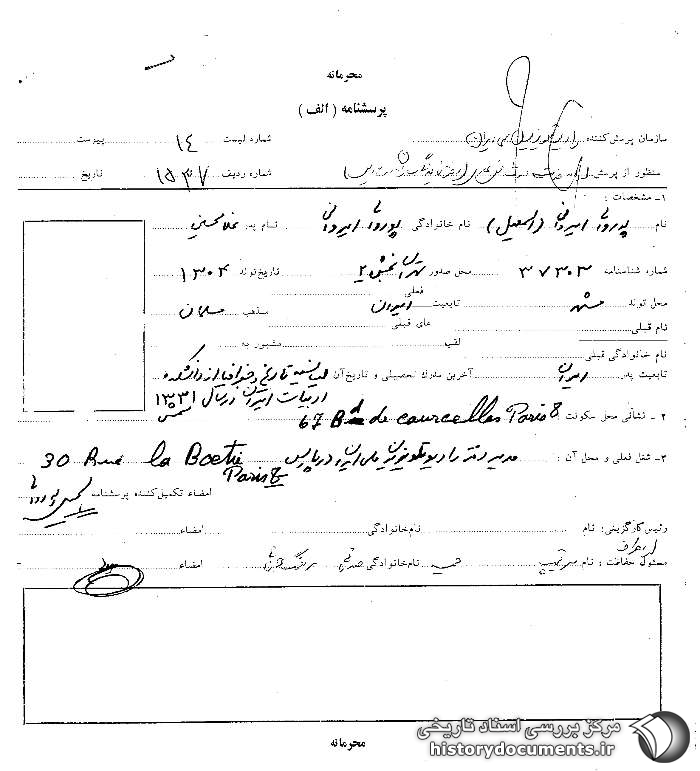 محرمانه
پرسشنامه ( الف )
سازمان پرسش کننده: رادیو تلویزیون ملی ایران شماره لیست ۱۴ پیوست
منظور از پرسش شماره ردیف ۱۵۳۷ تاریخ
۱ـ مشخصات :
نام پوروالی ایروانی (اسمعیل) نام خانوادگی پوروالی ایروانی نام پدر غلامحسین
شماره شناسنامه ۳۷۳۰۳ محل صدور تهران بخش ۲ تاریخ تولد ۱۳۰۴
محل تولد مشهد تابعیت فعلی ایران مذهب مسلمان
نام قبلی های قبلی
نام خانوادگی قبلی لقب مشهور به
تابعیت پدر ایران آخرین مدرک تحصیلی و تاریخ آن لیسانسیه تاریخ و جغرافیا از دانشکده
ادبیات ایران در سال ۱۳۳۱ شمسی
۲ ـ نشانی محل سکونت 67 Bd de courcelles Paris 8
۳ـ شغل فعلی و محل آن : مدیر دفتر رادیو تلویزیون ملی ایران در پاریس 30 Rue la Boetie
Paris 8
امضاء تکمیل کننده پرسشنامه
رئیس کارگزینی: نام نام خانوادگی امضاء
از طرف
مسئول حفاظت : نام سرتیپ نام خانوادگی امضاء
محرمانه
مرکز بررسی اسناد تاریخی
historydocuments.ir